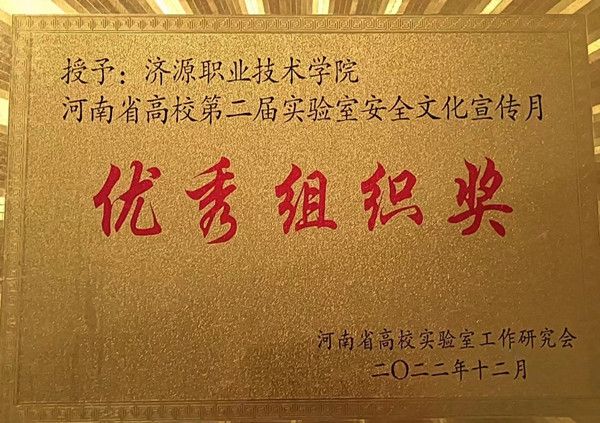 授予：济源职业技术学院
河南省高校第二届实验室安全文化宣传月
优秀组织奖
河南省高校实验室工作研究会
二〇二二年十二月